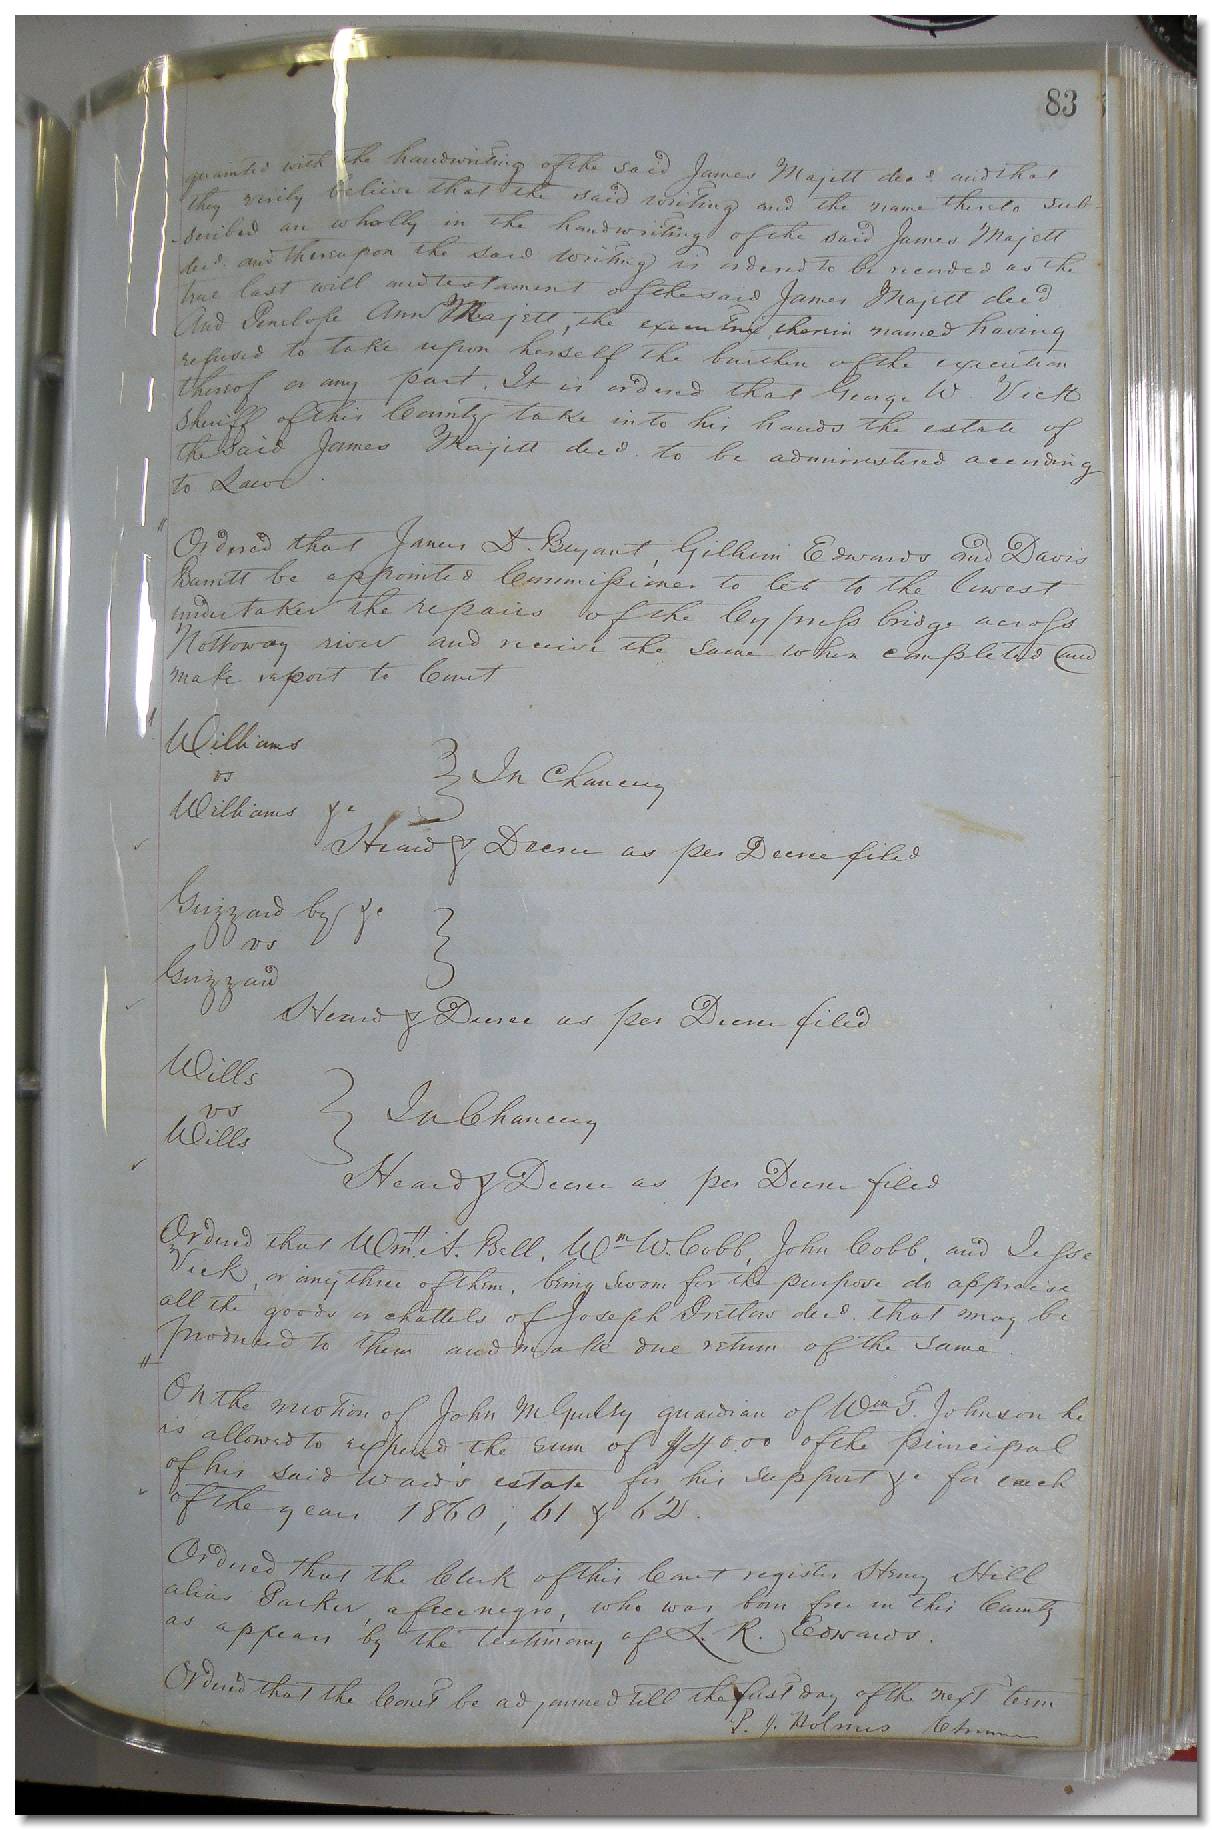 83
quainted with the handwriting of the said James Majett decd. and that
they verily believe that the said writing and the name thereto sub-
scribed are wholly in the handwriting of the said James Majett
decd. and thereupon the said writing is ordered to be recorded as the
true last will and testament of the said James Majett decd
And Penelope Ann Majett, the executrix therein named having
refused to take upon herself the burthen of the execution
thereof or any part. It is ordered that George W. Vick
Sheriff of this County take into his hands the estate of
the said James Majett decd. to be administered according
to Law.
Ordered that James D. Bryant, Edwards and Davis
be appointed Commissioners to let to the lowest
undertaker the repairs of the Cypress bridge across
Nottoway river and receive the same when completed and
make report to Court
Williams
vs
Williams &c
In Chancery
Heard & Decree as per Decree filed
Grizzard by &c
vs
Grizzard
Heard & Decree as per Decree filed
Wills
vs
Wills
In Chancery
Heard & Decree as per Decree filed
Ordered that Wm. A. Bell, Wm W. Cobb, John Cobb, and Jesse
Vick, or any three of them, being sworn for the purpose do appraise
all the goods or chattels of Joseph Pretlow decd. that may be
produced to them and make due return of the same.
On the motion of John guardian of Wm T. Johnson he
is allowed to expend the sum of $40.00 of the principal
of his said ward's estate for his support &c for each
of the years 1860, 61 & 62.
Ordered that the Clerk of this Court register Henry Hill
alias Parker, a free negro, who was born free in this County
as appears by the testimony of L. R. Edwards.
Ordered that the Court be adjourned till the first day of the next term
P. J. Holmes Chrman